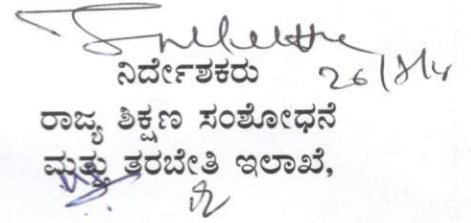 ನಿರ್ದೇಶಕರು
ರಾಜ್ಯ ಶಿಕ್ಷಣ ಸಂಶೋಧನೆ
ಮತ್ತು ತರಬೇತಿ ಇಲಾಖೆ,